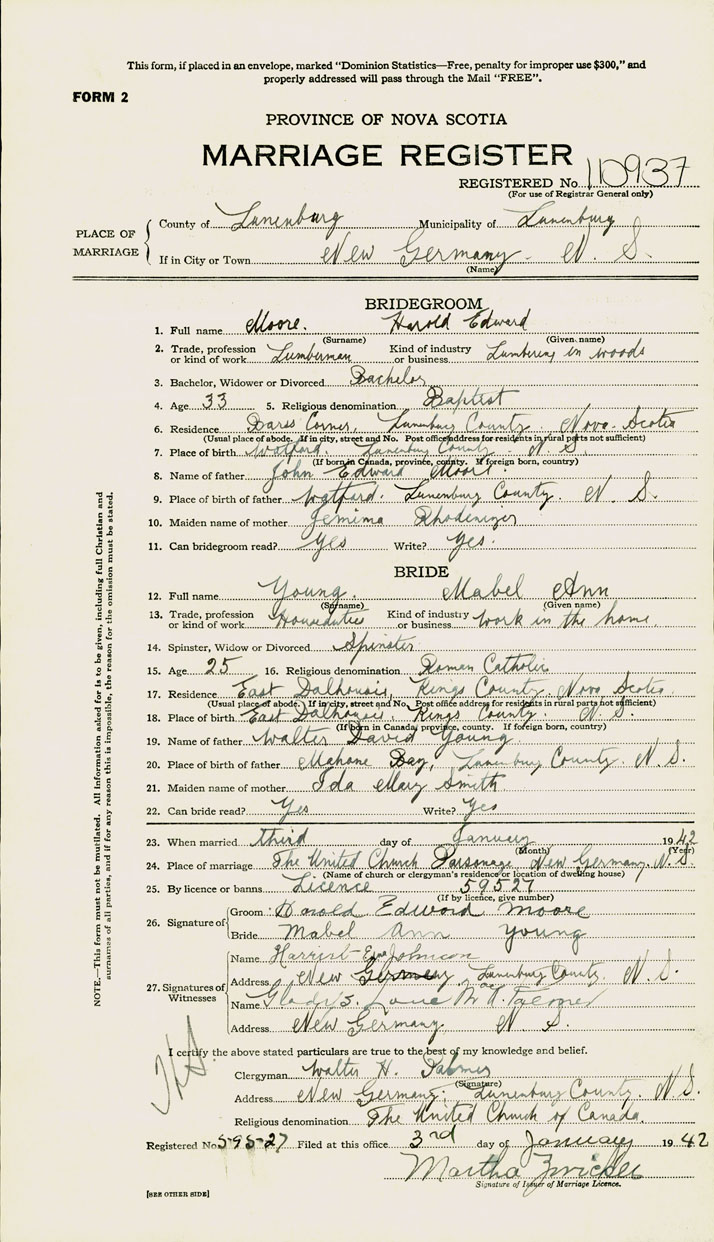 This form, if placed in an envelope, marked "Dominion Statistics—Free, penalty for improper use $300," and
properly addressed will pass through the Mail "FREE".
FORM 2
PROVINCE OF NOVA SCOTIA
MARRIAGE REGISTER
REGISTERED No. 110937
(For use of Registrar General only)
PLACE OF MARRIAGE
County of Lunenburg Municipality of Lunenburg
If in City or Town New Germany. N. S.
(Name)
BRIDEGROOM
1. Full name Moore. Harold Edward
(Surname) (Given name)
2. Trade, profession or kind of work Lumberman Kind of industry or business Lumbering in woods
3. Bachelor, Widower or Divorced Bachelor
4. Age 33 5. Religious denomination Baptist
6. Residence Dares Corner, Lunenburg County. Nova Scotia
(Usual place of abode. If in city, street and No. Post office address for residents in rural parts not sufficient)
7. Place of birth Watford. Lunenburg County. N. S.
(If born in Canada, province, county. If foreign born, country)
8. Name of father John Edward Moore.
9. Place of birth of father Watford. Lunenburg County. N. S.
10. Maiden name of mother Jemima Rhodenizer
11. Can bridegroom read? Yes Write? Yes.
BRIDE
12. Full name Young. Mabel Ann
(Surname) (Given name)
13. Trade, profession or kind of work Houseduties Kind of industry or business work in the home.
14. Spinster, Widow or Divorced Spinster
15. Age 25 16. Religious denomination Roman Catholic
17. Residence East Dalhousie, Kings County, Nova Scotia
(Usual place of abode. If in city, street and No. Post office address for residents in rural parts not sufficient)
18. Place of birth East Dalhousie, Kings County N. S.
(If born in Canada, province, county. If foreign born, country)
19. Name of father Walter David Young
20. Place of birth of father Mahone Bay, Lunenburg County. N. S.
21. Maiden name of mother Ida Mary Smith
22. Can bride read? Yes Write? Yes
23. When married third day of January 1942
(Month) (Year)
24. Place of marriage The United Church Parsonage New Germany. N. S.
(Name of church or clergyman's residence or location of dwelling house)
25. By licence or banns Licence 59527
(If by licence, give number)
26. Signature of
Groom Harold Edward Moore
Bride Mabel Ann Young
27. Signatures of Witnesses
Name Harriet Johnson
Address New Germany, Lunenburg County. N. S.
Name Gladys. Palmer
Address New Germany N. S.
I certify the above stated particulars are true to the best of my knowledge and belief.
Clergyman Walter H. Palmer
(Signature)
Address New Germany. Lunenburg County. N. S.
Religious denomination The United Church of Canada.
Registered No. 59527 Filed at this office 3rd day of January 1942
Martha Zwicker
Signature of Issuer of Marriage Licence.
[SEE OTHER SIDE]
NOTE.—This form must not be mutilated. All information asked for is to be given, including full Christian and
surnames of all parties, and if for any reason this is impossible, the reason for the omission must be stated.